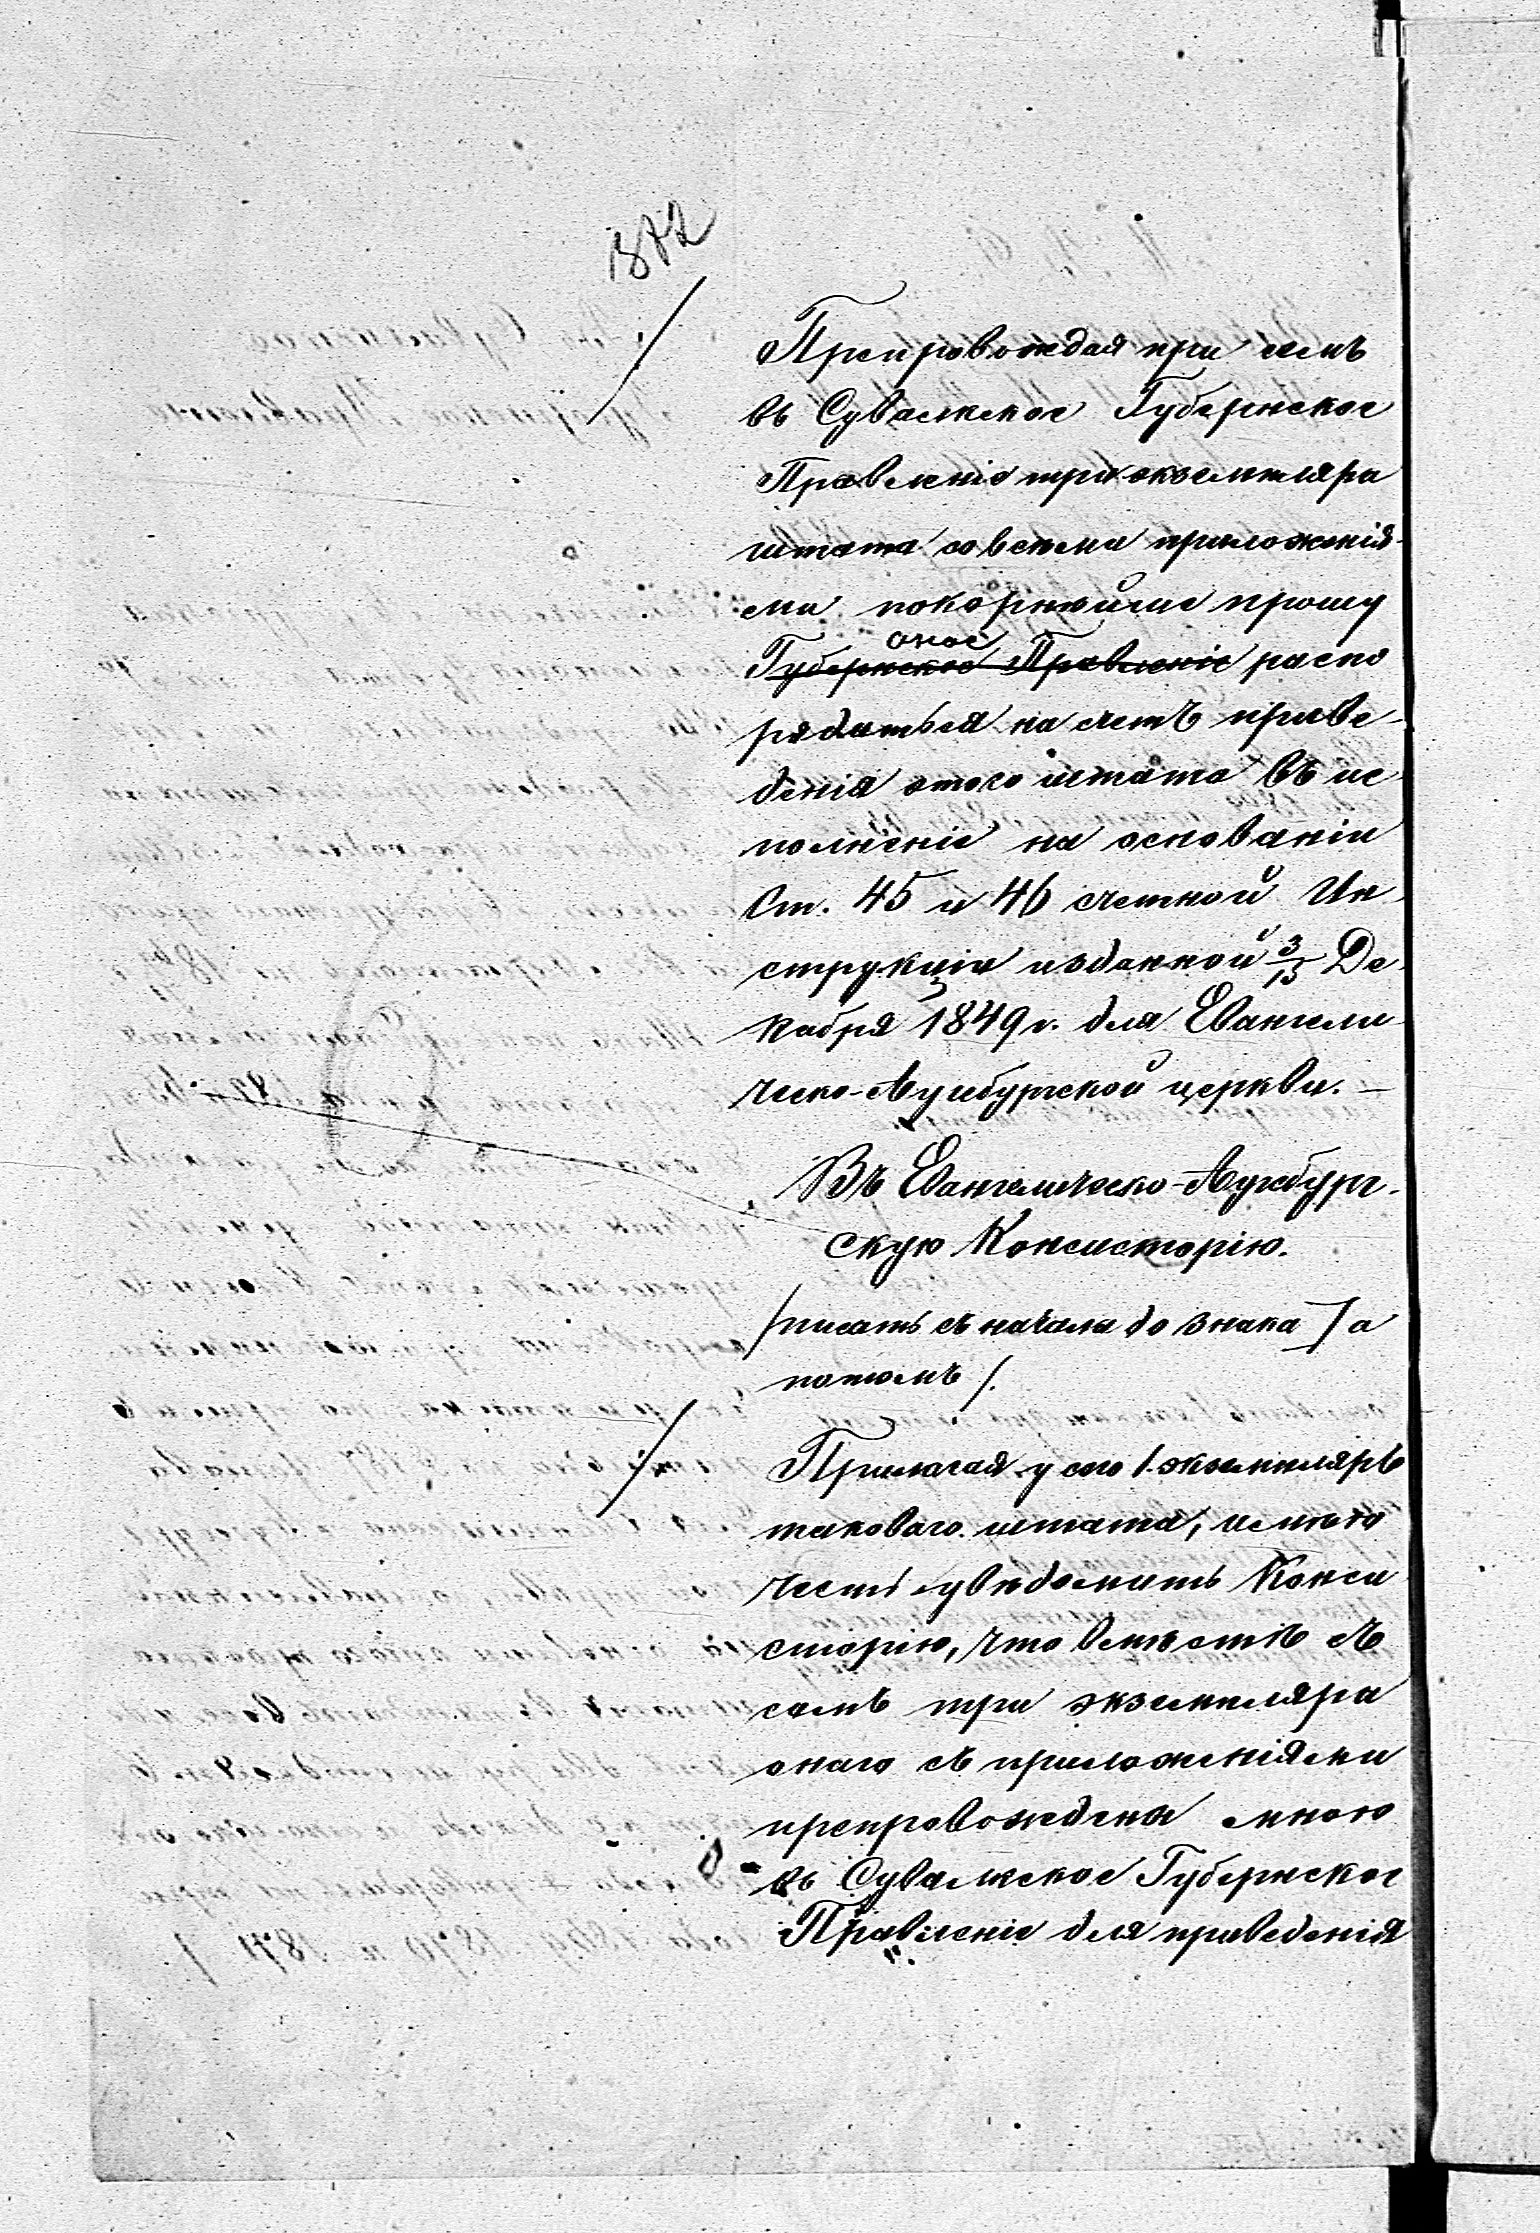 372
Препровождая при семъ
въ Сувалкское Губернское
Правленіе три экземпляра
штата со всѣми приложенія-
ми покорнѣйше прошу
оное
Губернское Правленіе распо
рядиться на счетъ приве-
денія этого штата въ ис-
полненіе на основаніи
Ст. 45 и 46 счетной Ин-
струкціи изданной 3/15 Де-
кабря 1849 г. для Евангели
ческо-Аугсбургской церкви. —
Въ Евангелическо-Аугсбург-
скую Консисторію.
/писать съ начала до знака ] а
потомъ/.
Прилагая у сего 1 экземпляръ
таковаго штата, имѣю
честь увѣдомить Конси
сторію, что вмѣстѣ съ
симъ три экземпляра
онаго съ приложеніями
препровождены мною
въ Сувалкское Губернское
Правленіе для приведенія